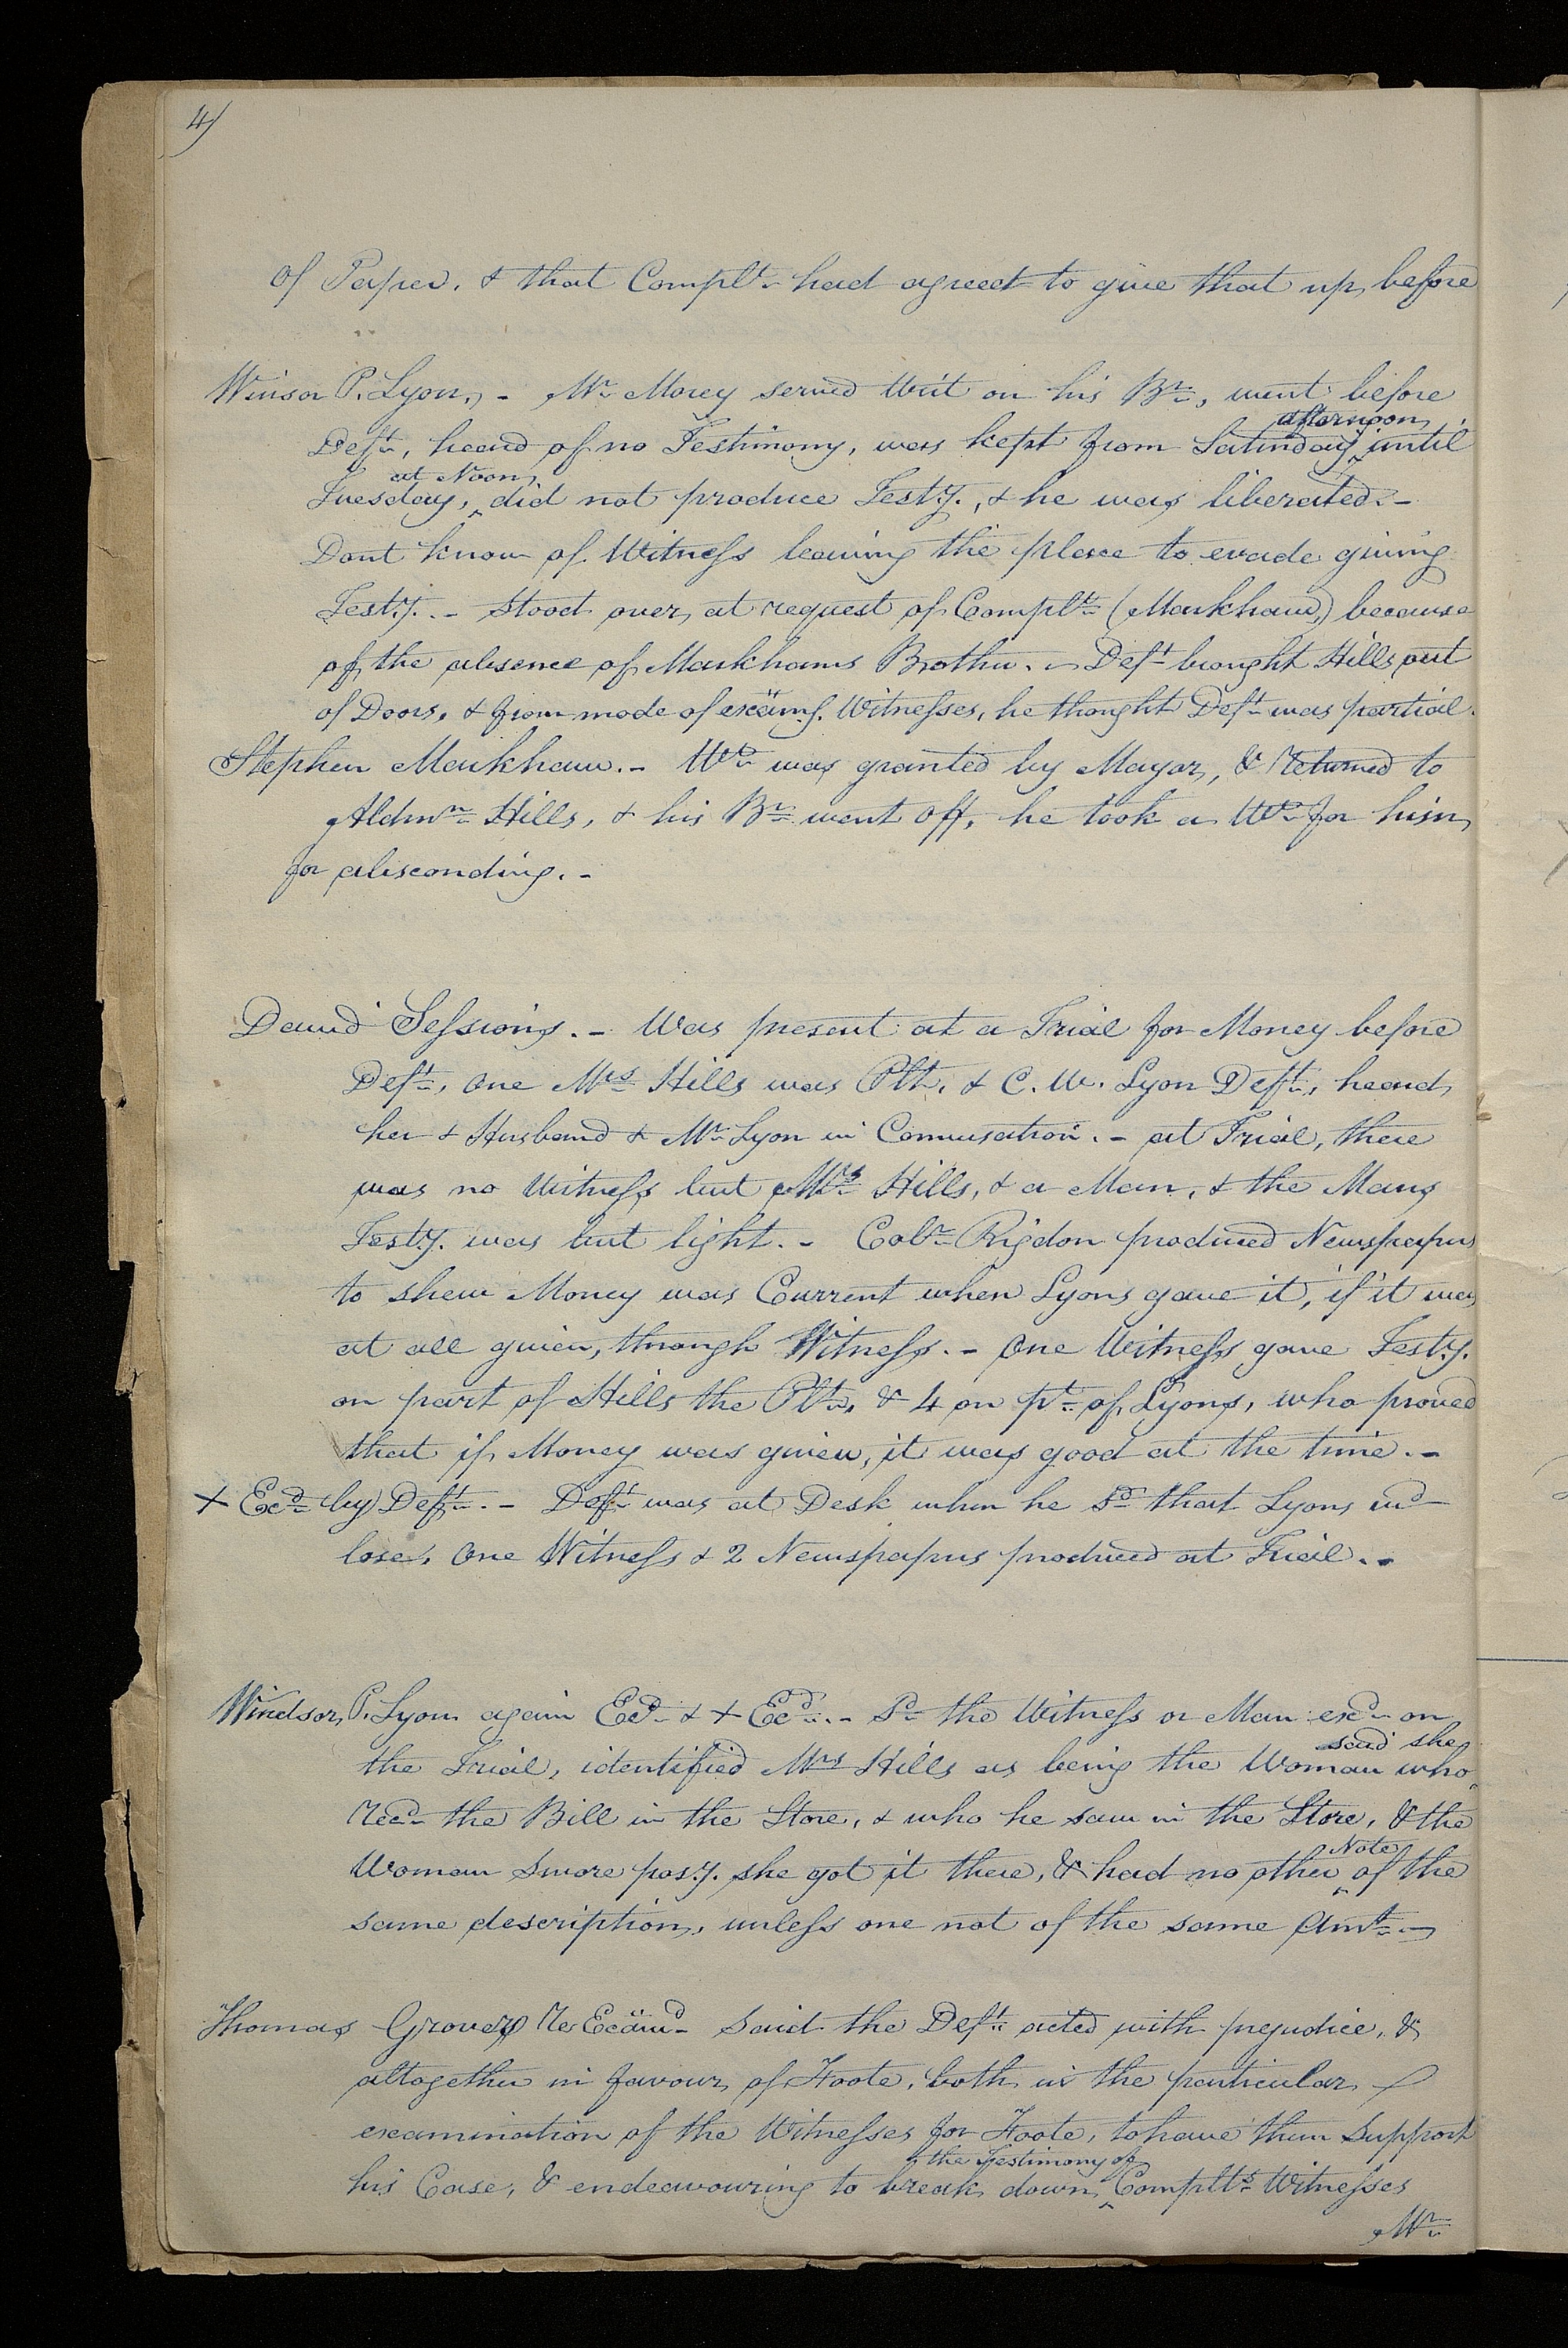 4)
of Paper. & that Complt. had agreed to give that up before
Winsor P. Lyon, - Mr. Morey served Writ on his Br., went before
afternoon
Deft., heard of no Testimony, was kept from Saturday, until
at Noon,
Tuesday, did not produce Testy., & he was liberated. -
Dont know of Witness leaving the place to evade giving
Testy. - Stood over, at request of Complt. (Markham,) because
of the absence of Markhams Brother. - Deft. brought Hills out
of Doors, & from mode of examg. Witnesses, he thought Deft. was partial.
Stephen Markham. - Wt. was granted by Mayor, & returned to
Aldmn. Hills, & his Br. went off, he took a Wt. for him,
for absconding. -
David Sessions. - Was present at a Trial for Money before
Deft., One Mrs. Hills was Plt. & C. W. Lyon Deft., heard,
her & Husband & Mr. Lyon in Conversation. - at Trial, there
was no Witness but Mrs. Hills, & a Man, & the Mans
Testy. was but light. - Coln. Rigdon produced Newspapers
to shew Money was Current when Lyons gave it, if it was
at all given, through Witness. - One Witness gave Testy.
on part of Hills the Plt., & 4 on pt. of Lyons, who proved
that if Money was given, it was good at the time. -
+ Exd. by Deft. - Deft. was at Desk when he sd. that Lyons wd.
lose, One Witness & 2 Newspapers produced at Trial. -
Windsor P. Lyon again Exd. & + Exd. - Sd. the Witness or Man exd. on
said she
the Trial, identified Mrs. Hills as being the Woman who
recd. the Bill in the Store, & who he saw in the Store, & the
Note
Woman swore posy. she got it there, & had no other of the
same description, unless one not of the same Amt. -
Thomas Grover, Re Examd. Said the Deft. acted with prejudice, &
altogether in favour of Foote, both in the particular
examination of the Witnesses for Foote, to have them support
the Testimony of
his Case, & endeavouring to break down, Complts. Witnesses
Mr.